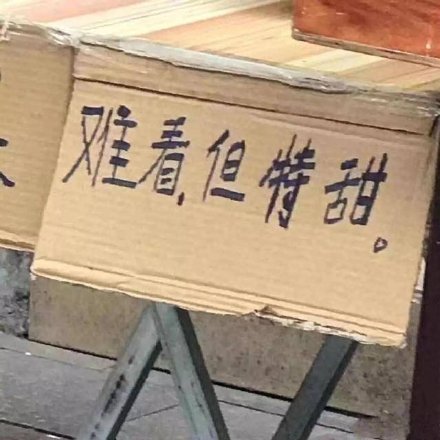 难看，但特甜。